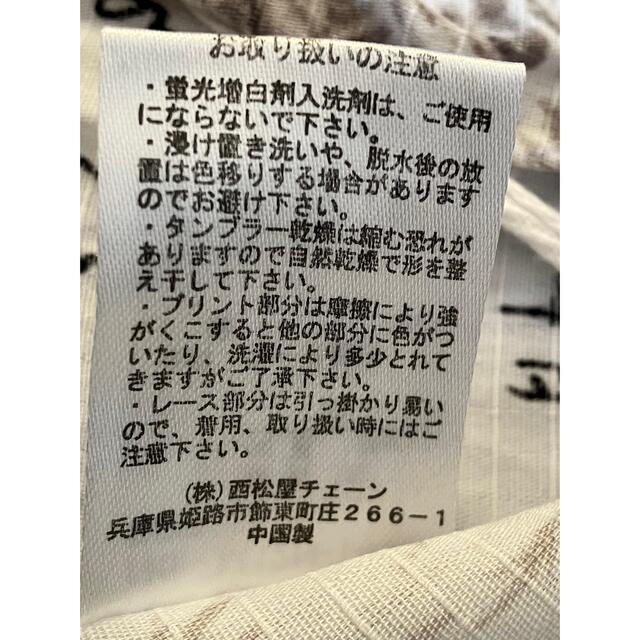 お取り扱いの注意
・蛍光増白剤入洗剤は、ご使用
にならないで下さい。
・浸け置き洗いや、脱水後の放
置は色移りする場合があります
のでお避け下さい。
・タンブラー乾燥は縮む恐れが
ありますので自然乾燥で形を整
え干して下さい。
・プリント部分は摩擦により強
がくこすると他の部分に色がつ
いたり、洗濯により多少とれて
きますがご了承下さい。
・レース部分は引っ掛かり易い
ので、着用、取り扱い時にはご
注意下さい。
(株)西松屋チェーン
兵庫県姫路市飾東町庄266-1
中国製